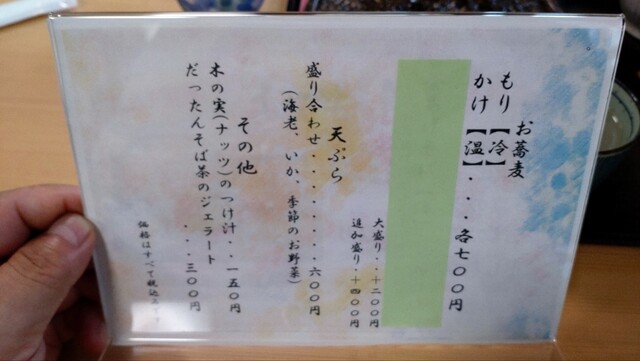 お蕎麦
もり【冷】
かけ【温】・・・各七〇〇円
大盛り・・＋二〇〇円
追加盛り・・＋四〇〇円
天ぷら
盛り合わせ・・・・・・・六〇〇円
(海老、いか、季節のお野菜)
その他
木の実(ナッツ)のつけ汁・・一五〇円
だったんそば茶のジェラート
・・・三〇〇円
価格はすべて税込みです